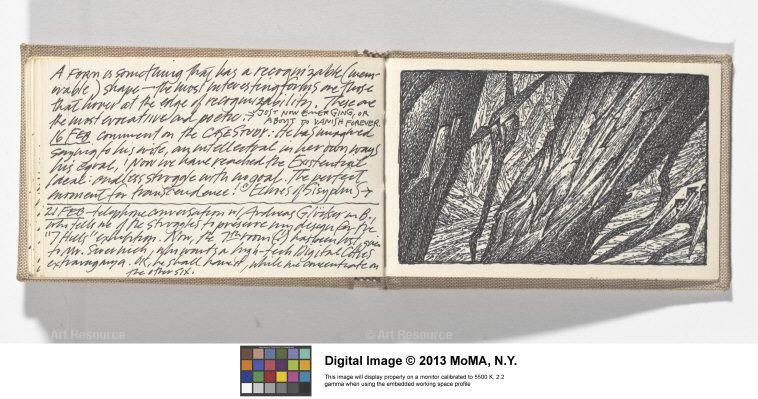 A FORM is something that has a recognizable (mem-
orable) shape—the most interesting forms are those
that hover at the edge of recognizability. These are
the most evocative and poetic. → JUST NOW EMERGING, OR
ABOUT TO VANISH FOREVER.
16 FEB comment on the CASE STUDY: He has imagined
saying to his wife, an intellectual in her own ways
his equal, ! Now we have reached the Existential
ideal: endless struggle with no goal. The perfect
moment for transcendence! Echoes of Sisyphus →
21 FEB—telephone conversation w/ Andreas in B.,
who tells me of the struggles to preserve my design for the
"7 Hills" exhibition. Now, the 7th room (?) has been
to Mr. who wants a high-tech Digital
extravaganza. OK, he shall have it, while we concentrate on
the other six.
Art Resource
© Art Resource
Digital Image © 2013 MoMA, N.Y.
This image will display properly on a monitor calibrated to 5500 K, 2.2
gamma when using the embedded working space profile